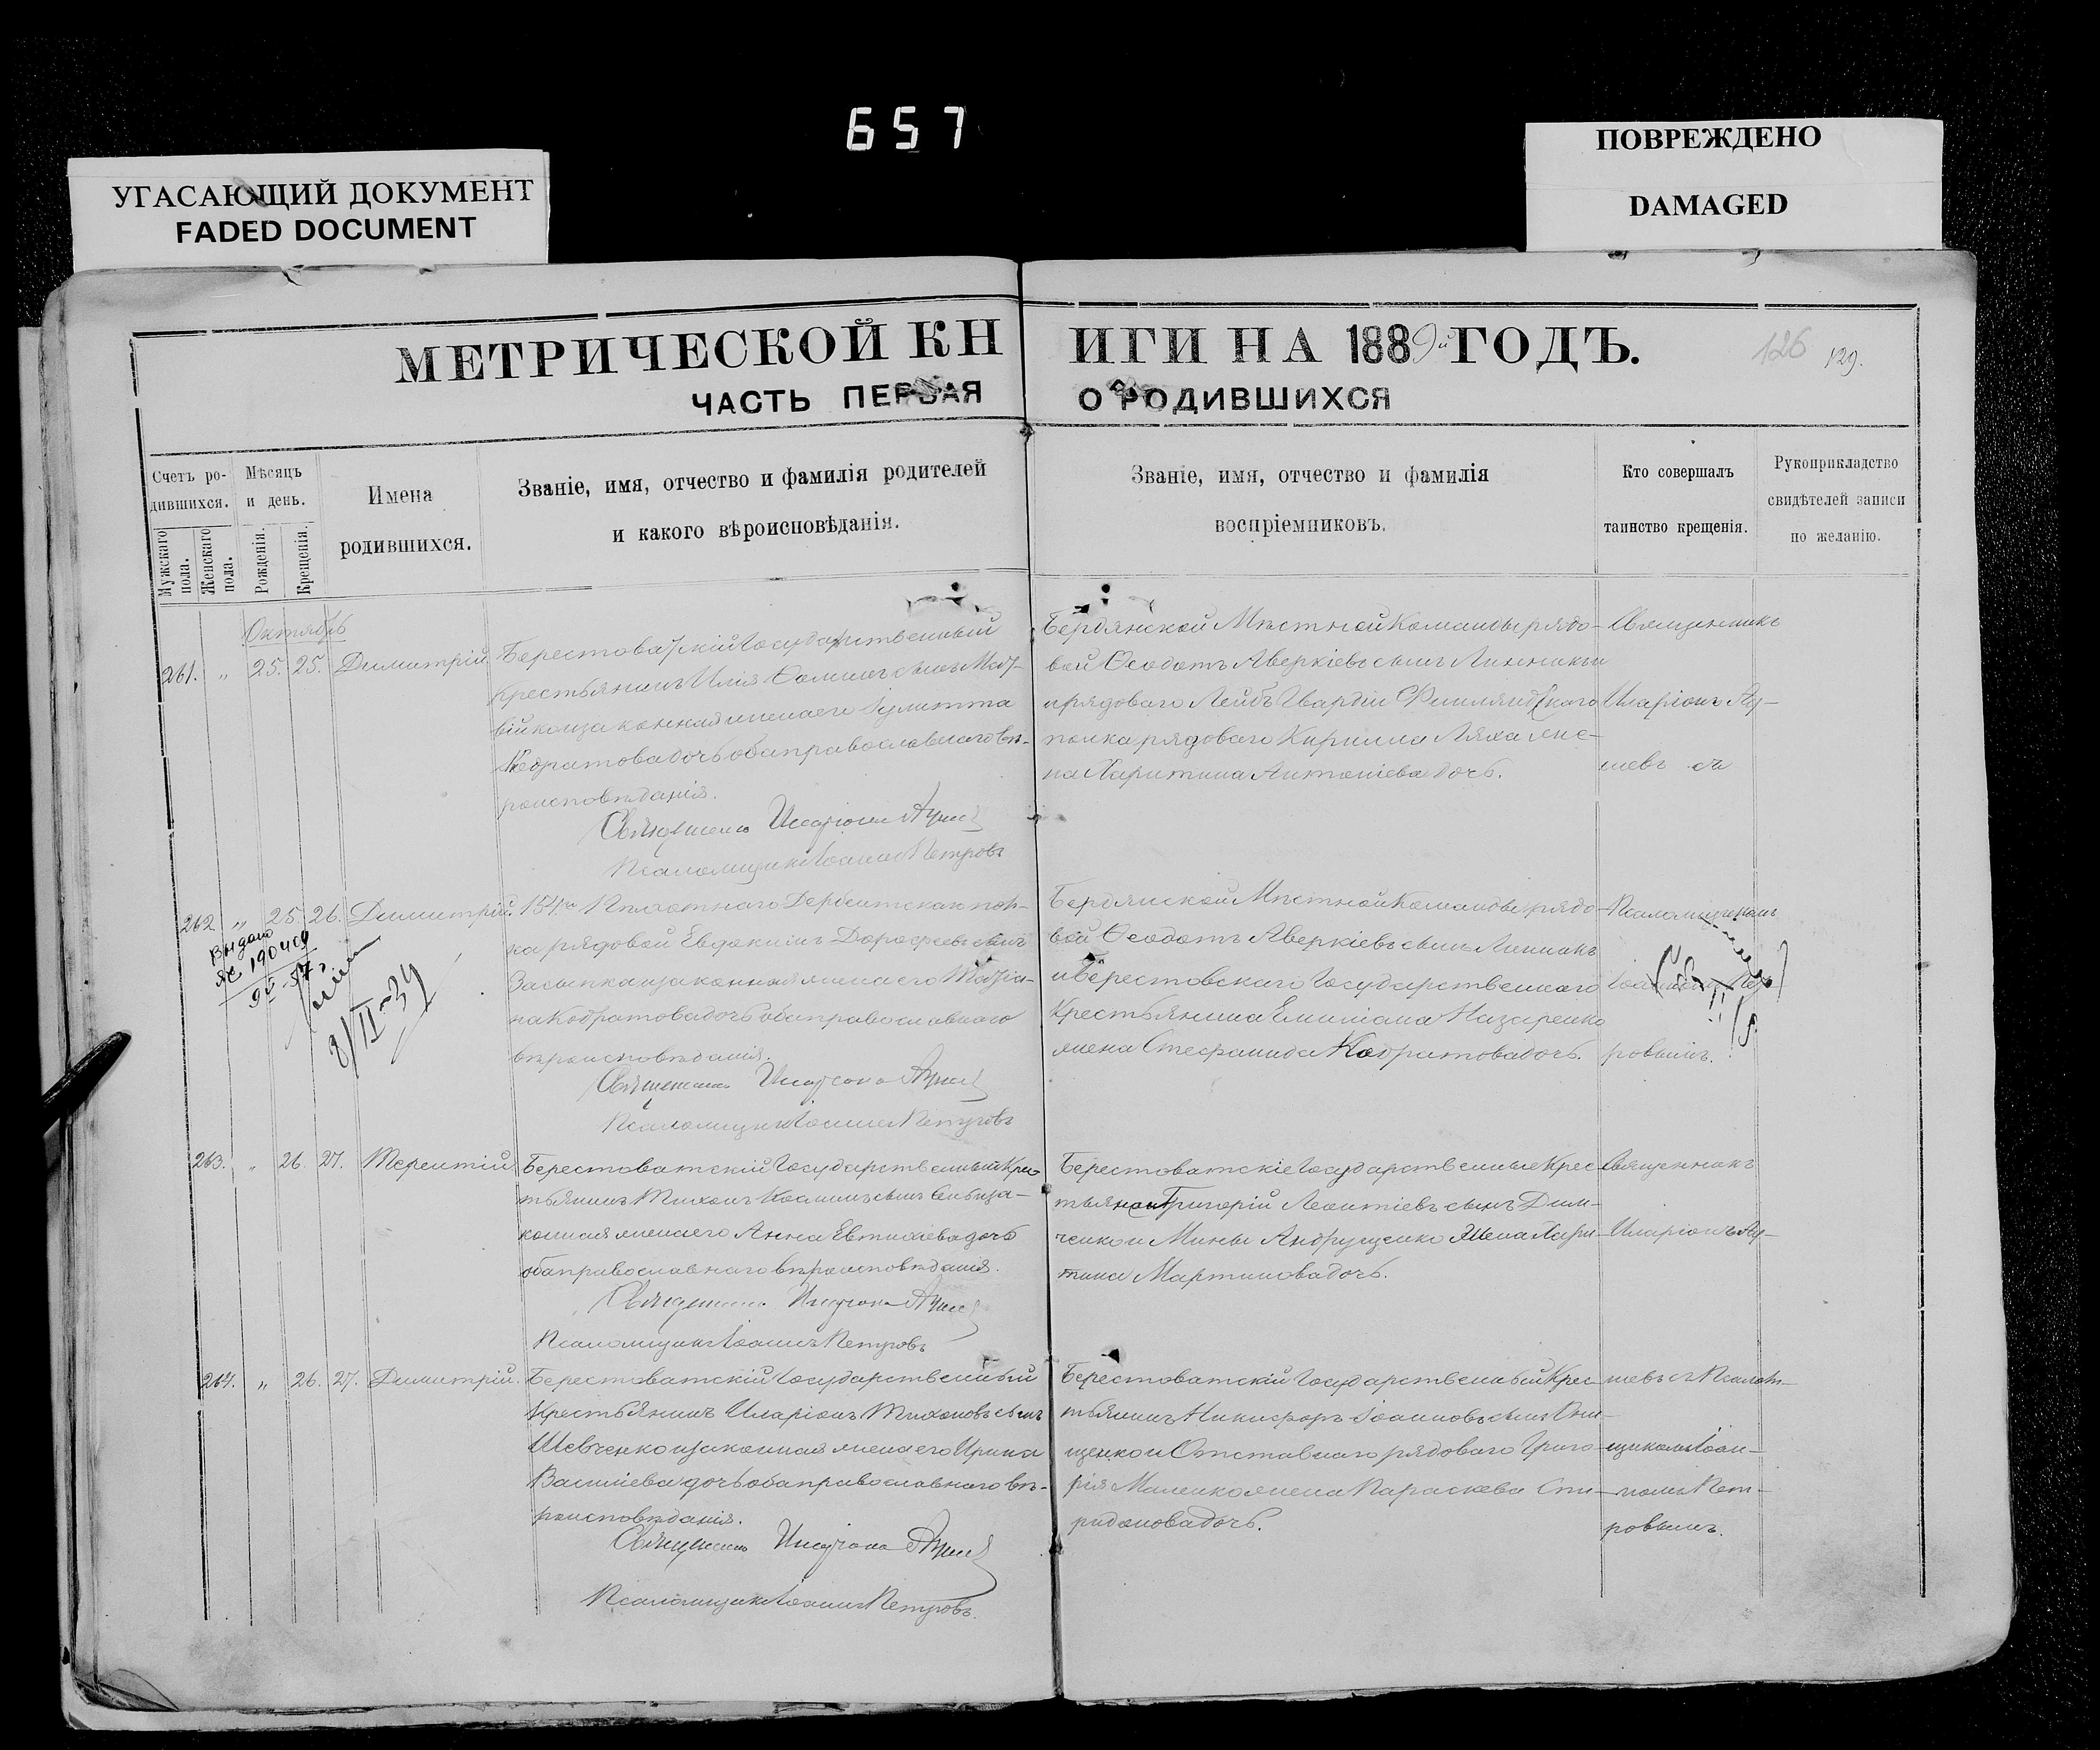 657
УГАСАЮЩИЙ ДОКУМЕНТ
FADED DOCUMENT
ПОВРЕЖДЕНО
DAMAGED
МЕТРИЧЕСКОЙ КНИГИ НА 1889й ГОДЪ.
126 129.
ЧАСТЬ ПЕРВАЯ О РОДИВШИХСЯ
Счетъ ро-
дившихся.
Мужскаго пола.
Женскаго пола.
Мѣсяцъ
и день.
Рожденія.
Крещенія.
Имена
родившихся.
Званіе, имя, отчество и фамилія родителей
и какого вѣроисповѣданія.
Званіе, имя, отчество и фамилія
воспріемниковъ.
Кто совершалъ
таинство крещенія.
Рукоприкладство
свидѣтелей записи
по желанію.
Октябрь
261. " 25. 25. Димитрій
Берестоватскій Государственный
крестьянинъ Илія Ѳоминъ сынъ
законная жена его Іулитта
Кодратова дочь оба православнаго вѣ-
роисповѣданія.
Священникъ Иларіонъ
Псаломщикъ Іоаннъ Петровъ
Бердянской Мѣстной Команды рядо-
вой Ѳеодотъ Аверкіевъ сынъ
и рядоваго Лейбъ Гвардіи Финляндскаго
полка рядоваго Кирилла Ляха же-
на Харитина Антоніева дочь.
Священникъ
Иларіонъ
шевъ съ
262. " 25. 26. Димитрій.
154го Пѣхотнаго Дербентскаго пол-
ка рядовой Евдокимъ Дорофеевъ сынъ
Засыпка и законная жена его Татіа-
на Кодратова дочь оба православнаго
вѣроисповѣданія.
Священникъ Иларіонъ
Псаломщикъ Іоаннъ Петровъ
Бердянской Мѣстной Команды рядо-
вой Ѳеодотъ Аверкіевъ сынъ
и Берестовскаго Государственнаго
Крестьянина Емиліана Назаренко
жена Стефанида Кодратова дочь.
Псаломщикомъ
ровымъ.
Выдано
8/II-39
263. " 26. 27. Терентій
Берестоватскій Государственный Крес-
тьянинъ Тихонъ Косминъ сынъ
конная жена его Анна Евтихіева дочь
оба православнаго вѣроисповѣданія.
Священникъ Иларіонъ
Псаломщикъ Іоаннъ Петровъ
Берестоватскіе Государственные Крес-
тьяне Григорій Леонтіевъ сынъ Дим-
ченко и Мины Андрущенко жена Хари-
тина Мартинова дочь.
Священникъ
Иларіонъ
264. " 26. 27. Димитрій.
Берестоватскій Государственный
Крестьянинъ Иларіонъ Тихоновъ сынъ
Шевченко и законная жена его Ирина
Василіева дочь оба православнаго вѣ-
роисповѣданія.
Священникъ Иларіонъ
Псаломщикъ Іоаннъ Петровъ.
Берестоватскій Государственный Крес-
тьянинъ Никифоръ Іоанновъ сынъ Они-
щенко и Отставнаго рядоваго Григо-
рія Маленко жена Параскева Спи-
ридонова дочь.
шевъ съ Псалом-
щикомъ Іоан-
номъ Пет-
ровымъ.